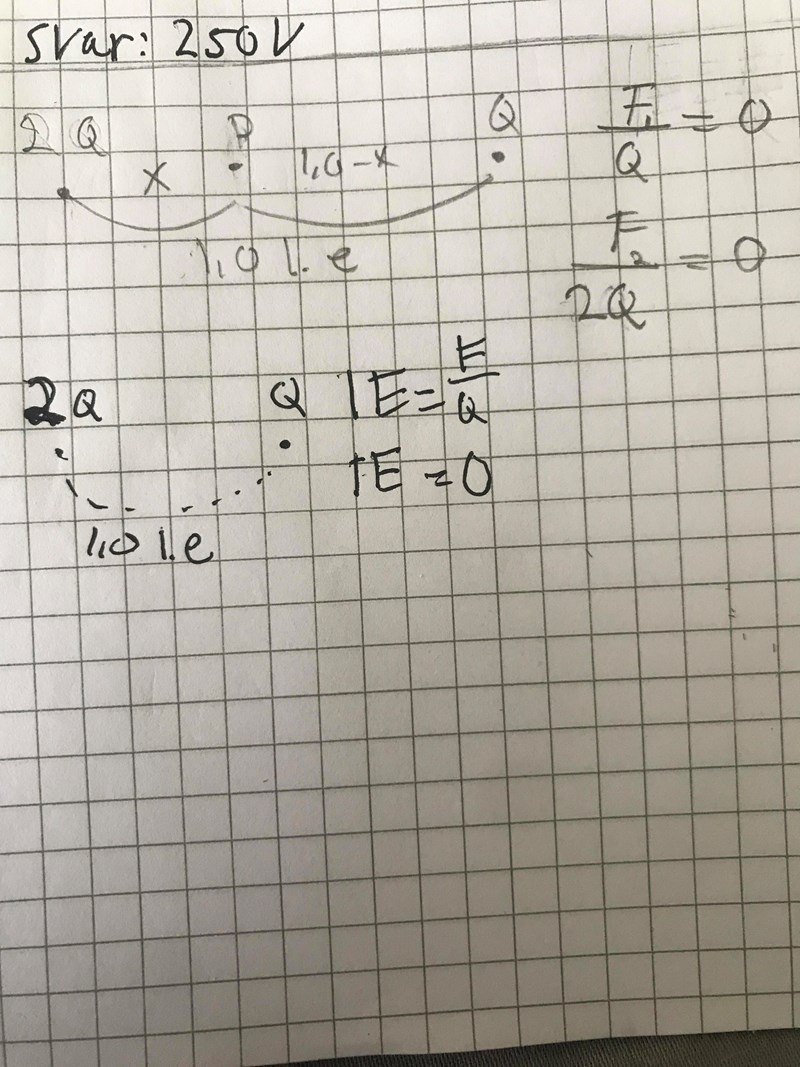 Svar: 250V
2Q P Q
x 1,0-x
1,0 l.e
F₁/Q = 0
F₂/2Q = 0
2Q Q
1,0 l.e
|E = F/Q
|E = 0